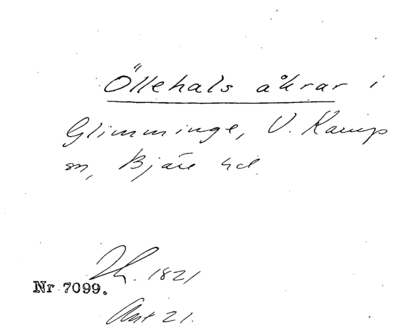 Öllehals åkrar i
Glimminge, V. Karup
sn, Bjäre hd.
1821
Nr 7099.
Akt 21.